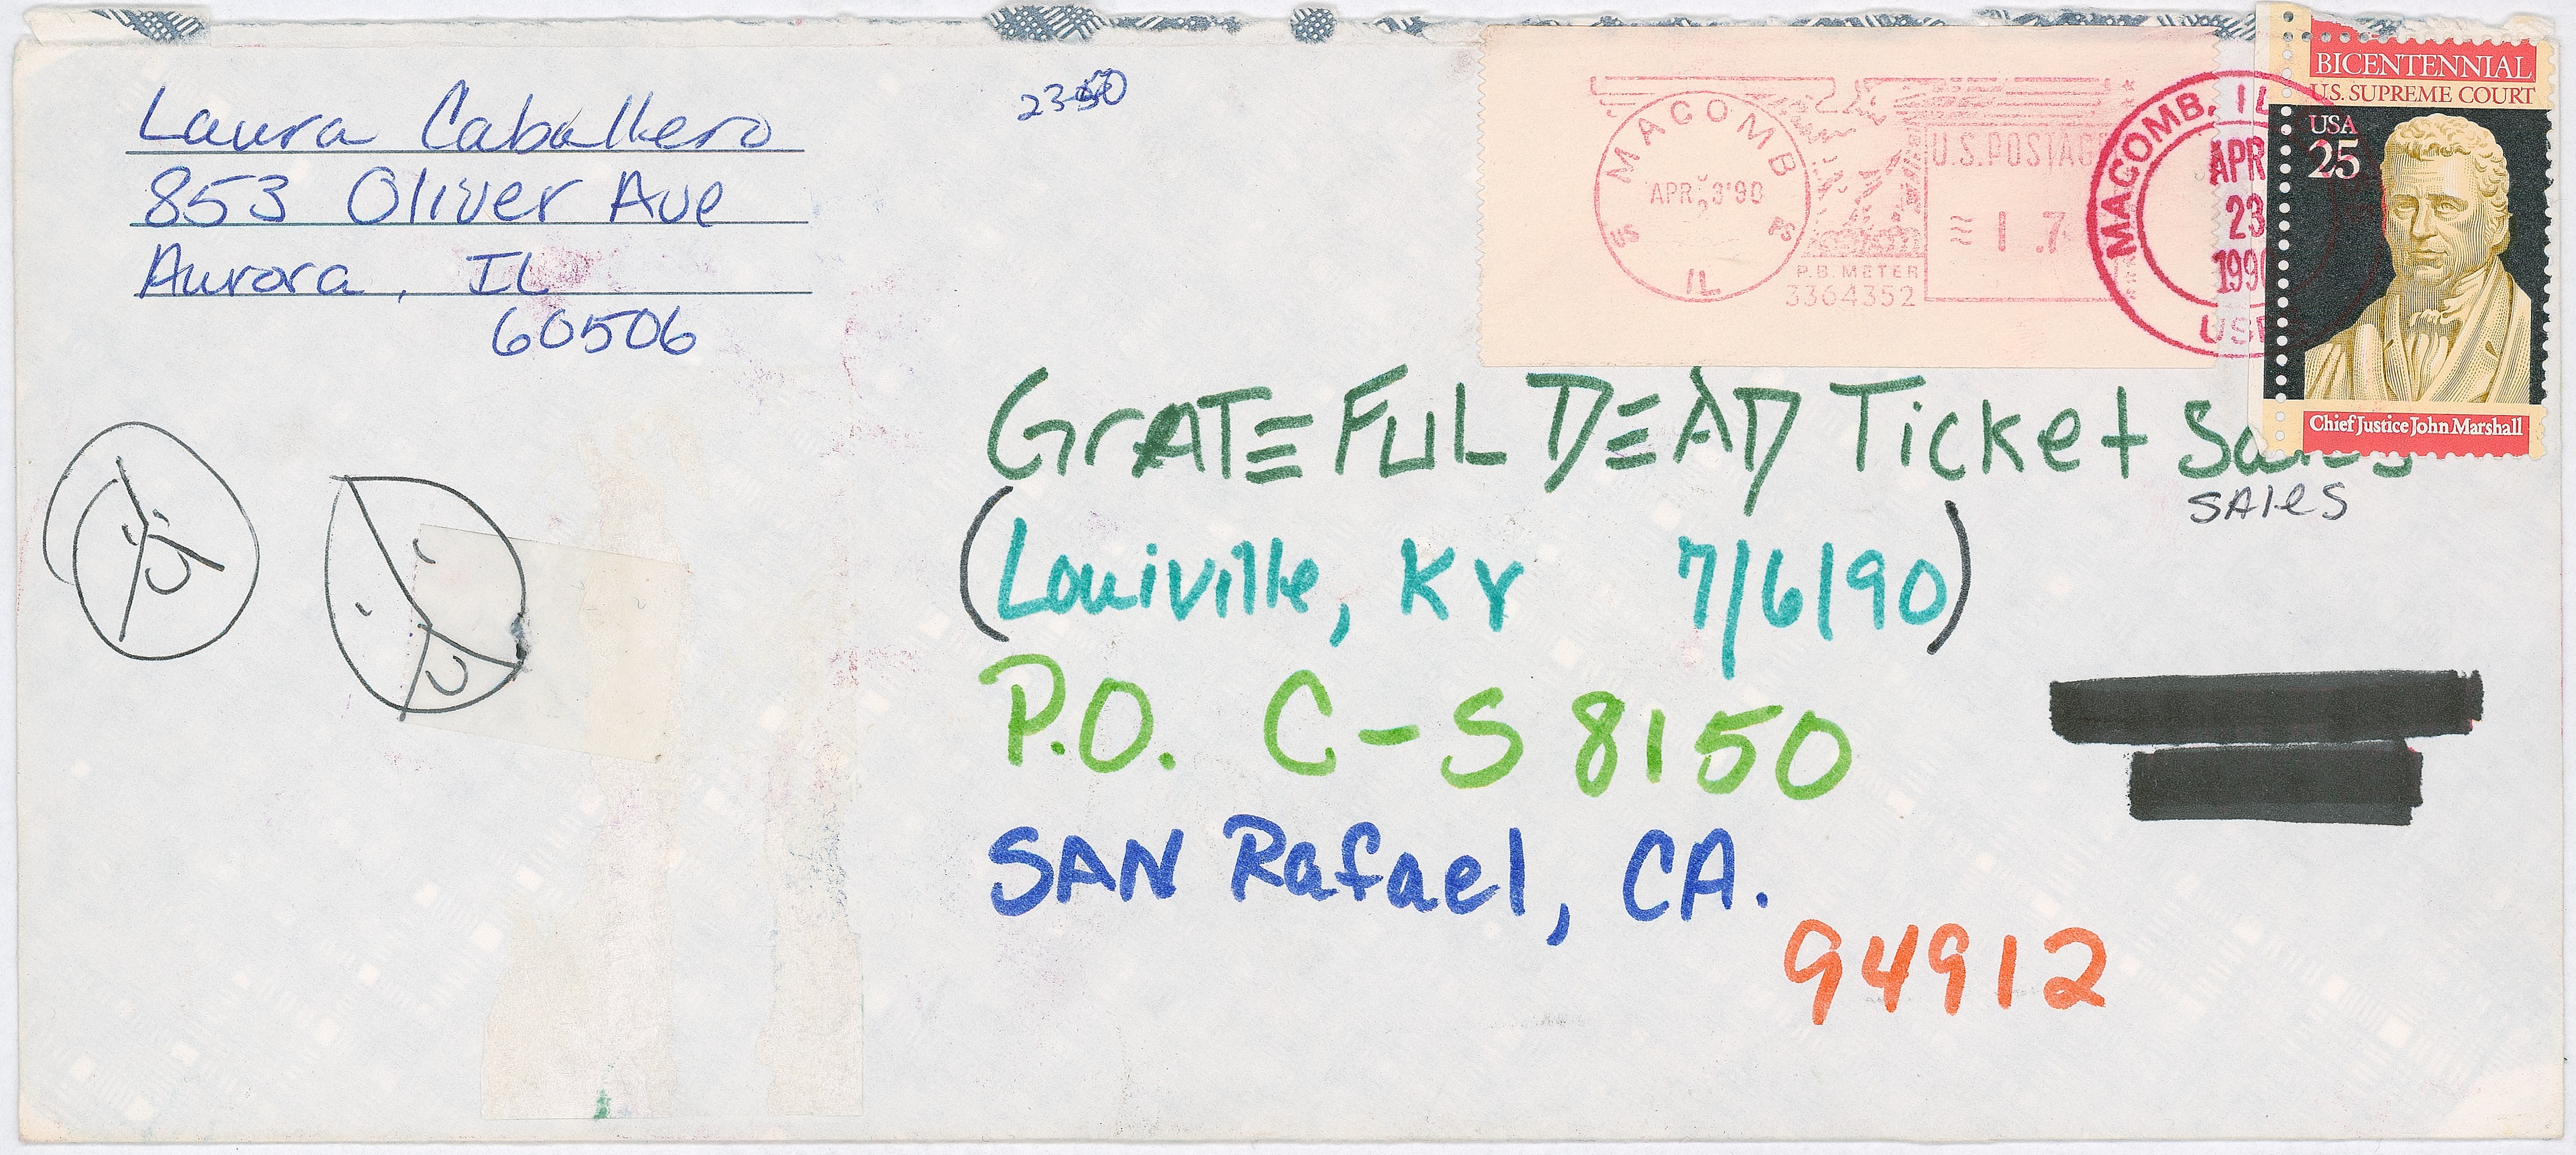 Laura Caballero
853 Oliver Ave
Aurora, IL
60506
MACOMB
APR 3'90
IL
P.B. METER
3364352
U.S. POSTAG
1.7
MACOMB, IL
APR
23
1990
BICENTENNIAL
U.S. SUPREME COURT
USA
25
Chief Justice John Marshall
GrATEFUL DEAD Ticket Sales
SAleS
(Louiville, KY 7/6/90)
P.O. C-S 8150
SAN Rafael, CA.
94912